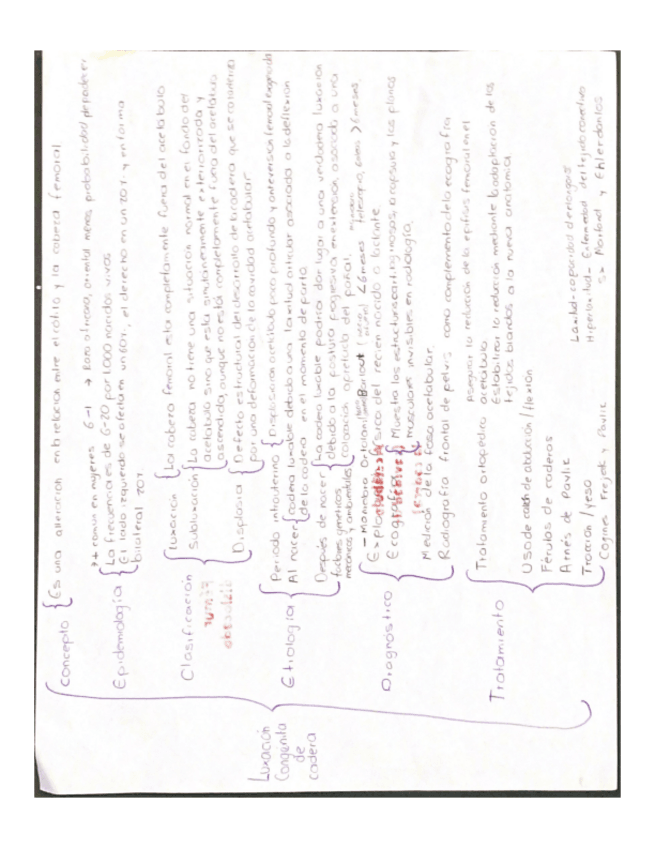 Luxación
Congénita
de
cadera
Concepto
Es una alteración en la relación entre el cótilo y la cabeza femoral
Epidemiología
+ común en mujeres 6-1 → Raza africana, oriental menos probabilidad de padecer
La frecuencia es de 6-20 por 1,000 nacidos vivos
El lado izquierdo se afecta en un 60%, el derecho en un 20% y en forma
bilateral 20%.
Clasificación
Luxación
La cabeza femoral esta completamente fuera del acetabulo
Subluxación
La cabeza no tiene una situación normal en el fondo del
acetabulo sino que está simultáneamente exteriorizada y
ascendida, aunque no está completamente fuera del acetabulo
Displasia
Defecto estructural del desarrollo de la cadera que se caracteriza
por una deformación de la cavidad acetabular
Etiología
Periodo intrauterino
Displasia con acetabulo poco profundo y anteversion femoral exagerada
Al nacer
Cadera luxable debido a una laxitud articular asociada a la deflexión
de la cadera en el momento de parto
Después de nacer
La cadera luxable podría dar lugar a una verdadera luxación
debido a la postura progresiva en extension, asociado a una
colocación apretada del pañal.
factores geneticos
mecanicos y ambientales
Diagnóstico
- Maniobra Ortolani Barlout
<6meses
>6meses
físico del recien nacido o lactante
Ecografía
Muestra las estructuras cartilaginosas, grasas y los planos
musculares invisibles en radiografia.
Medición de la fossa acetabular.
Radiografia frontal de pelvis como complemento de la ecografia
Tratamiento
Tratamiento ortopedico
Asegurar la reducción de la epifisis femoral en el
acetabulo
Estabilizar la reducción mediante la adaptación de los
tejidos blandos a la nueva anatomia
Uso de abducción/flexión
Férulas de caderas
Arnés de Pavlic
Tracción/yeso
Cogines Frejek y Pavlic
Laxitud - capacidad de elongars
Hiperlaxitud - Enfermedad del tejido conectivo
Sx Marland y Ehlerdanlos